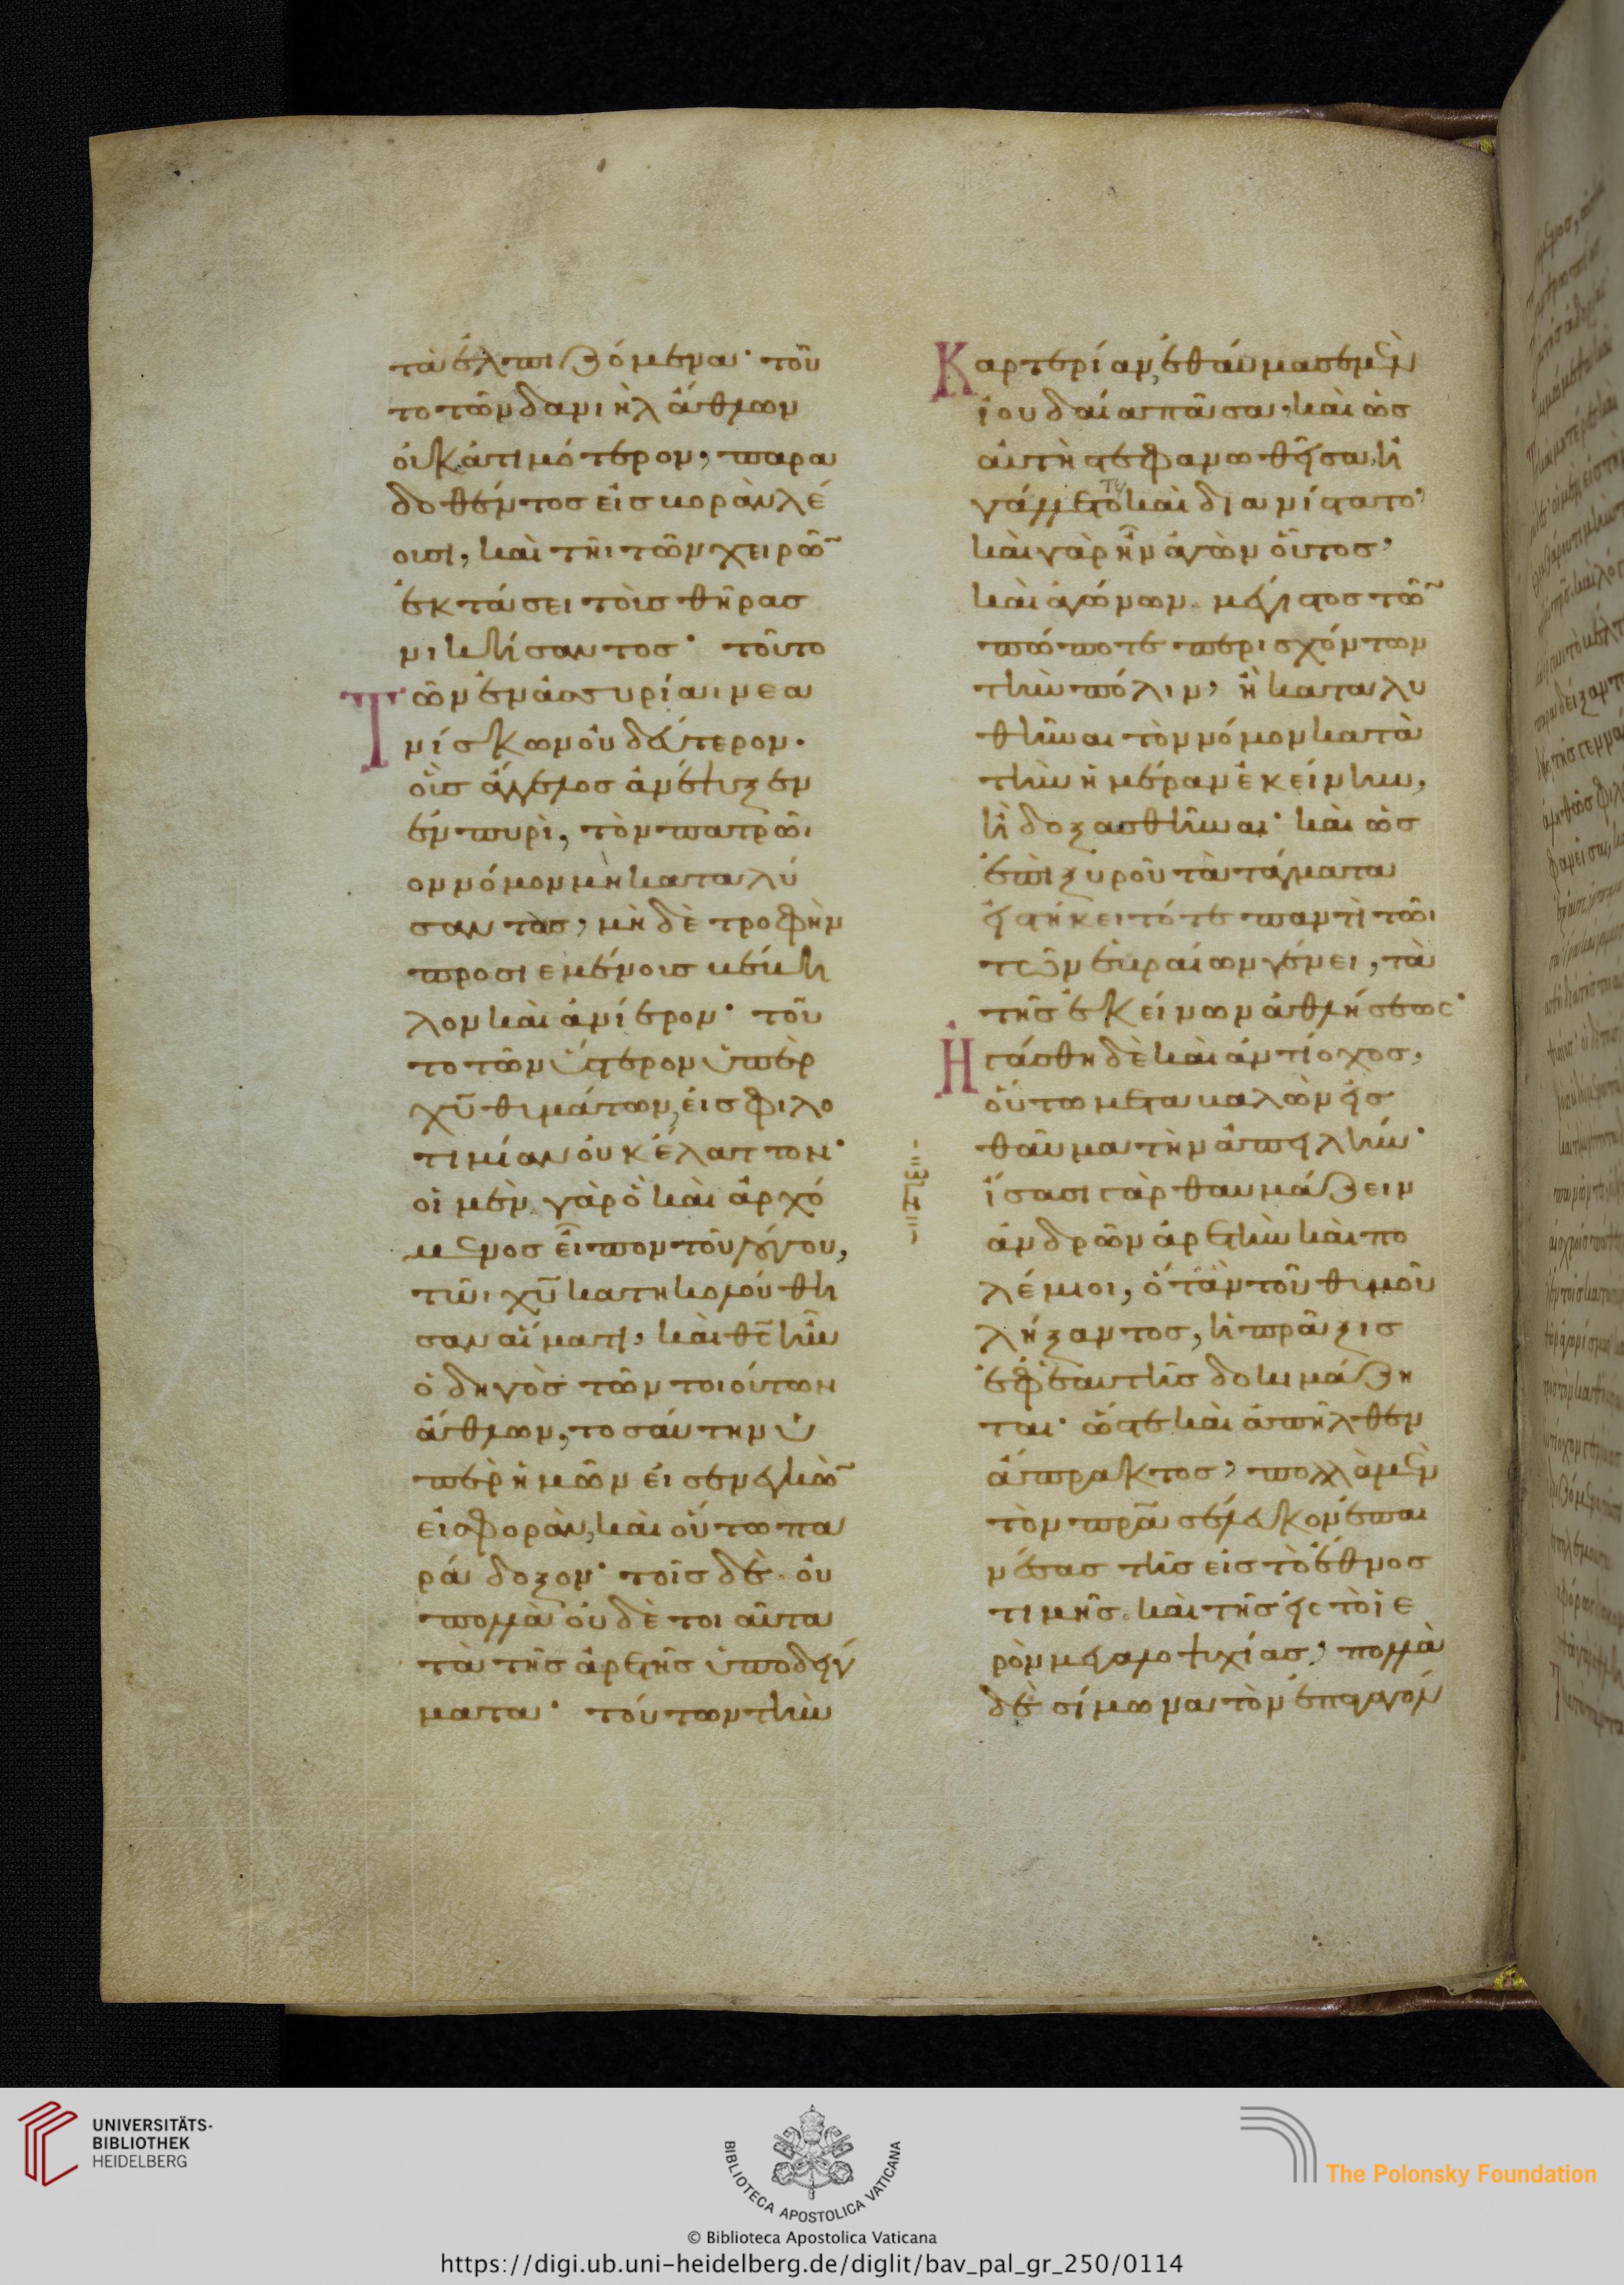 τὰ ἐλπιζόμενα· τοῦ
το τῶν δανιὴλ ἄθλων
οὐκ ἀτιμότερον, παρα
δοθέντος εἰς βορὰν λέ
ουσι, καὶ τῆι τῶν χειρῶ̄
ἐκτάσει τοὺς θῆρας
νικήσαντος· τοῦτο
Τῶν ἐν ἀσσυρίαι νεα
νίσκων οὐ δεύτερον·
οὓς ἄγγελος ἀνέψυξεν
ἐν πυρὶ, τὸν πατρῶι
ον νόμον μὴ καταλύ
σαντας, μὴ δὲ τροφὴν
προσιεμένους βέβη
λον καὶ ἀνίερον· τοῦ
το τῶν ὕστερον ὑπὲρ
χῦ θυμάτων, εἰς φιλο
τιμίαν οὐκ ἔλαττον·
οἱ μὲν γὰρ ὃ καὶ ἀρχό
μενος εἶπον τοῦ λόγου,
τῶι χῦ κατηκολούθη
σαν αἵματι, καὶ θς̄ ἦν
ὁ δηγὸς τῶν τοιούτων
ἄθλων, τοσαύτην ὑ
πὲρ ἡμῶν εἰσενεγκὼ̄
εἰσφορὰν, καὶ οὕτω πα
ράδοξον· τοῖς δὲ οὐ
πολλὰ οὐ δὲ τοιαῦτα
τὰ τῆς ἀρετῆς ὑποδείγ
ματα· τούτων τὴν
Καρτερίαν, ἐθαύμασε μὲν
ἰουδαία πᾶσα, καὶ ὡς
αὐτὴ στεφανωθεῖσα, ἠ
γάλλετό τε καὶ διανίστατο·
καὶ γὰρ ἦν ἀγὼν οὗτος,
καὶ ἀγώνων μέγιστος τῶ̄
πώποτε περισχόντων
τὴν πόλιν, ἢ καταλυ
θῆναι τὸν νόμον κατὰ
τὴν ἡμέραν ἐκείνην,
ἢ δοξασθῆναι· καὶ ὡς
ἐπὶ ξυροῦ τὰ πράγματα
εἱστήκει τότε παντὶ τῶι
τῶν ἑβραίων γένει, τὰ
τῆς ἐκείνων ἀθλήσεως·
Ἠγάσθη δὲ καὶ ἀντίοχος,
οὕτω μεταβαλὼν εἰς
θαῦμα τὴν ἀπειλήν·
ἴσασι γὰρ θαυμάζειν
ἀνδρῶν ἀρετὴν καὶ πο
λέμιοι, ὅταν τοῦ θυμοῦ
λήξαντος, ἡ πρᾶξις
ἐφ' ἑαυτῆς δοκιμάζη
ται· ὥστε καὶ ἀπῆλθεν
ἄπρακτος, πολλὰ μὲν
τὸν πρ̄α σέλευκον ἐπαι
νέσας τῆς εἰς τὸ ἔθνος
τιμῆς. καὶ τῆς εἰς τὸ ἱε
ρὸν μεγαλοψυχίας, πολλὰ
δὲ σίμωνα τὸν ἐπαγαγόν